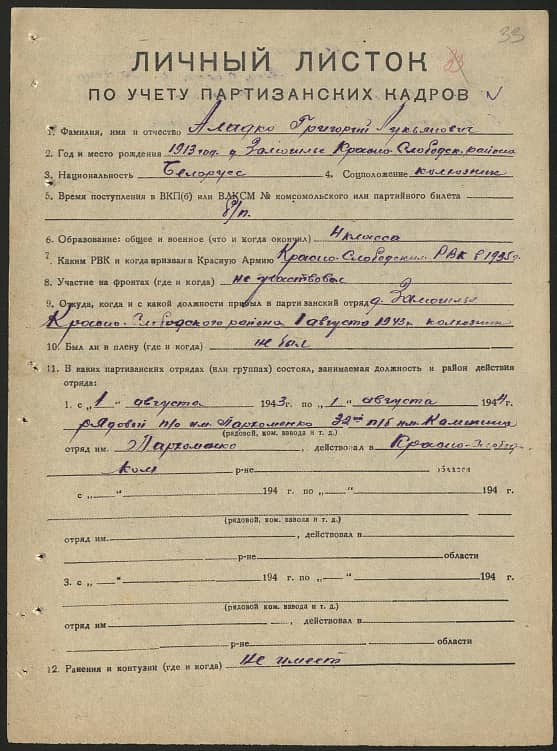 33
ЛИЧНЫЙ ЛИСТОК
ПО УЧЕТУ ПАРТИЗАНСКИХ КАДРОВ
1. Фамилия, имя и отчество Аладко Григорий Лукьянович
2. Год и место рождения 1913 год. д. Замошье Красно-Слободск. района
3. Национальность Белорусс 4. Соцположение колхозник
5. Время поступления в ВКП(б) или ВЛКСМ № комсомольского или партийного билета
б/п.
6. Образование: общее и военное (что и когда окончил) 4 класса
7. Каким РВК и когда призван в Красную Армию Красно-Слободским РВК в 1935 г.
8. Участие на фронтах (где и когда) не участвовал
9. Откуда, когда и с какой должности прибыл в партизанский отряд д. Замошье
Красно-Слободского района 1 августа 1943 г. колхозник
10. Был ли в плену (где и когда) не был
11. В каких партизанских отрядах (или группах) состоял, занимаемая должность и район действия
отряда:
1. с „1" августа 1943 г. по „1" августа 1944 г.
рядовой п/о им. Пархоменко 32й п/б им. Калинина
(рядовой, ком. взвода и т. д.)
отряд им. Пархоменко, действовал в Красно-Слобод
ком р-не области
с „ " 194 г. по „ " 194 г.
(рядовой, ком. взвода и т. д.)
отряд им. , действовал в
р-не области
3. с „ " 194 г. по „ " 194 г.
(рядовой, ком. взвода и т. д.)
отряд им. , действовал в
р-не области
12. Ранения и контузии (где и когда) не имеет